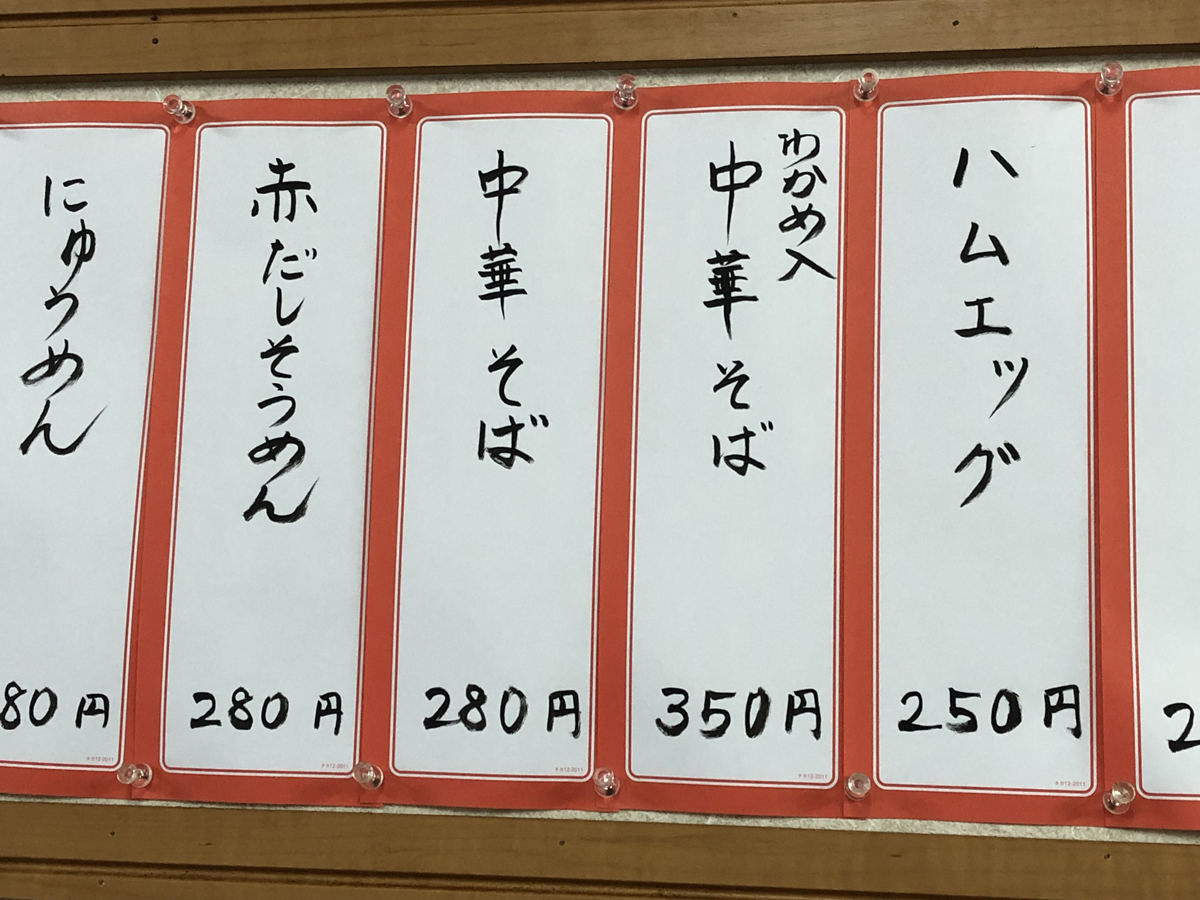 2
ハムエッグ
250円
わかめ入
中華そば
350円
中華そば
280円
赤だしそうめん
280円
にゅうめん
80円